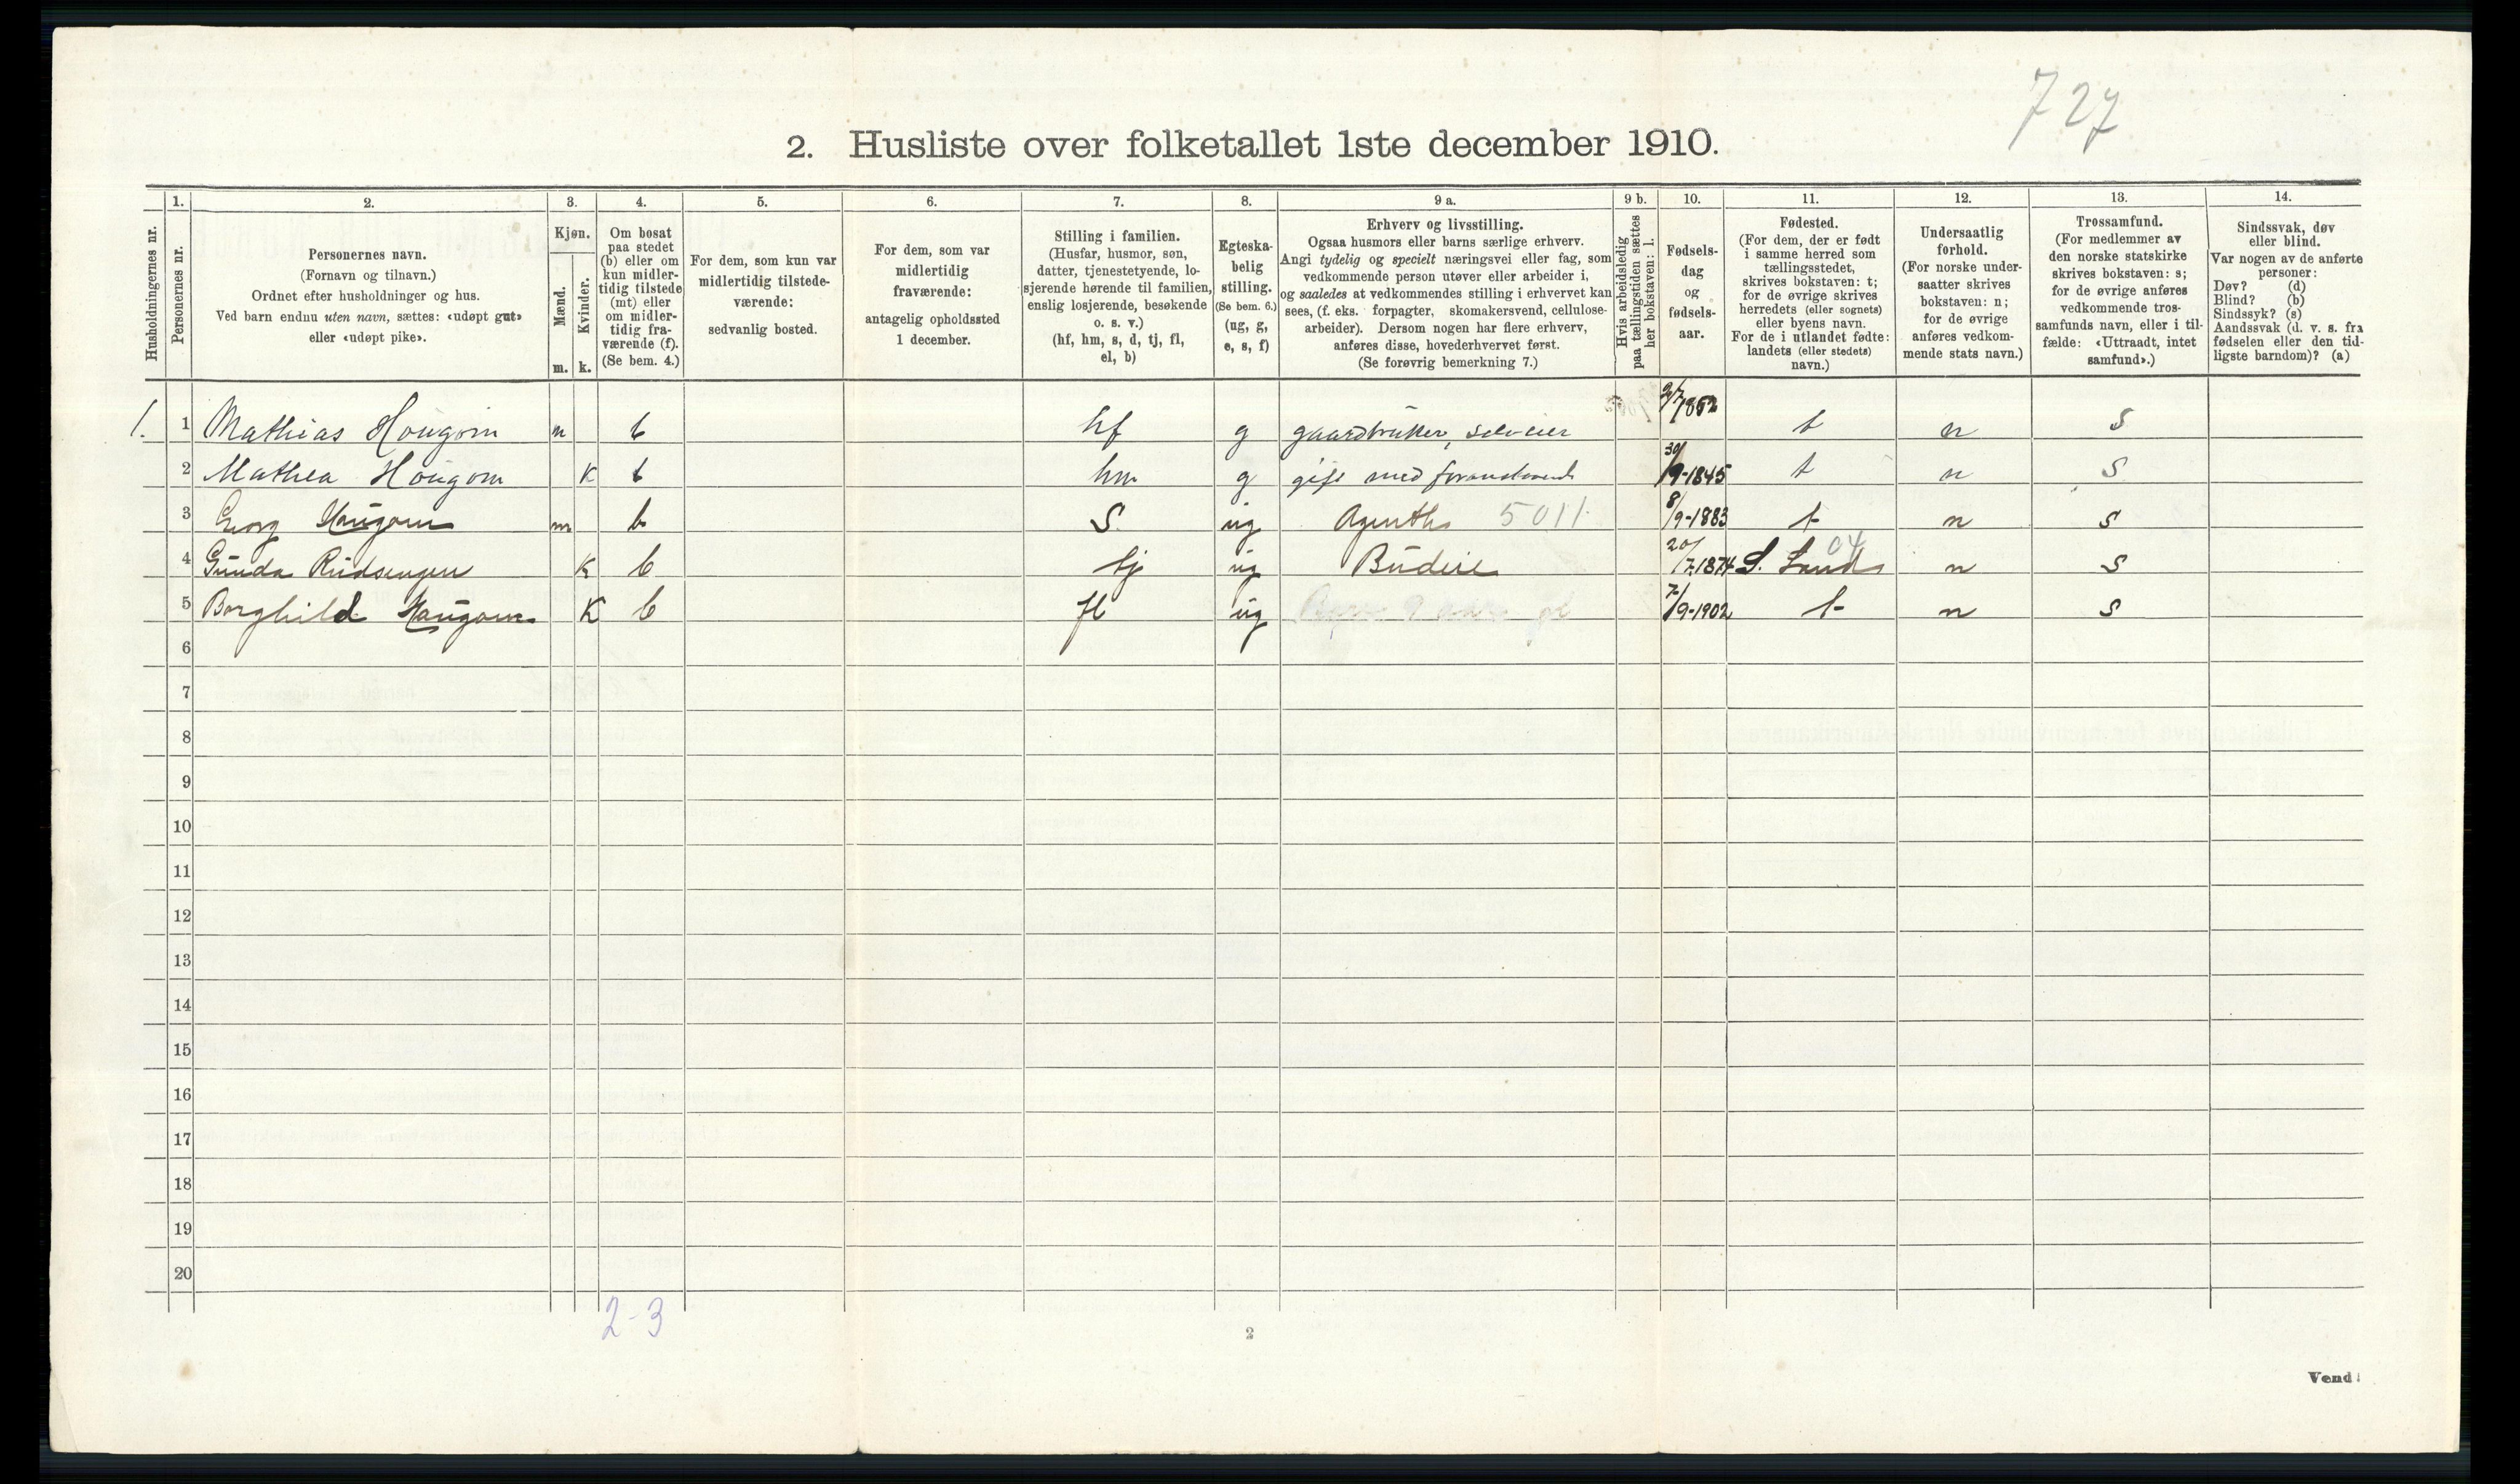 727
2. Husliste over folketallet 1ste december 1910.
Husholdningernes nr.
1. Personernes nr.
2. Personernes navn.
(Fornavn og tilnavn.)
Ordnet efter husholdninger og hus.
Ved barn endnu uten navn, sættes: «udøpt gut»
eller «udøpt pike».
3. Kjøn.
Mænd. m.
Kvinder. k.
4. Om bosat
paa stedet
(b) eller om
kun midler-
tidig tilstede
(mt) eller
om midler-
tidig fra-
værende (f).
(Se bem. 4.)
5. For dem, som kun var
midlertidig tilstede-
værende:
sedvanlig bosted.
6. For dem, som var
midlertidig
fraværende:
antagelig opholdssted
1 december.
7. Stilling i familien.
(Husfar, husmor, søn,
datter, tjenestetyende, lo-
sjerende hørende til familien,
enslig losjerende, besøkende
o. s. v.)
(hf, hm, s, d, tj, fl,
el, b)
8. Egteska-
belig
stilling.
(Se bem. 6.)
(ug, g,
e, s, f)
9 a. Erhverv og livsstilling.
Ogsaa husmors eller barns særlige erhverv.
Angi tydelig og specielt næringsvei eller fag, som
vedkommende person utøver eller arbeider i,
og saaledes at vedkommendes stilling i erhvervet kan
sees, (f. eks. forpagter, skomakersvend, cellulose-
arbeider). Dersom nogen har flere erhverv,
anføres disse, hovederhvervet først.
(Se forøvrig bemerkning 7.)
9 b. Hvis arbeidsledig
paa tællingstiden sættes
her bokstaven: l.
10. Fødsels-
dag
og
fødsels-
aar.
11. Fødested.
(For dem, der er født
i samme herred som
tællingsstedet,
skrives bokstaven: t;
for de øvrige skrives
herredets (eller sognets)
eller byens navn.
For de i utlandet fødte:
landets (eller stedets)
navn.)
12. Undersaatlig
forhold.
(For norske under-
saatter skrives
bokstaven: n;
for de øvrige
anføres vedkom-
mende stats navn.)
13. Trossamfund.
(For medlemmer av
den norske statskirke
skrives bokstaven: s;
for de øvrige anføres
vedkommende tros-
samfunds navn, eller i til-
fælde: «Uttraadt, intet
samfund».)
14. Sindssvak, døv
eller blind.
Var nogen av de anførte
personer:
Døv? (d)
Blind? (b)
Sindssyk? (s)
Aandssvak (d. v. s. fra
fødselen eller den tid-
ligste barndom)? (a)
1. 1 Mathias Hougom m b hf g gaardbruker, selveier 9/7 1852 t n s
2 Mathea Hougom k b hm g gift med foranstaaende 30/9-1845 t n s
3 Georg Haugom m b S. ug Agenth 5011 8/9-1883 t n s
4 Gunda Rudsengen k b tj ug Budeie 20/7.1874 S. Land 04 n s
5 Borghild Haugom K b fl ug 7/9-1902 t n s
6
7
8
9
10
11
12
13
14
15
16
17
18
19
20
2-3
2
Vend!